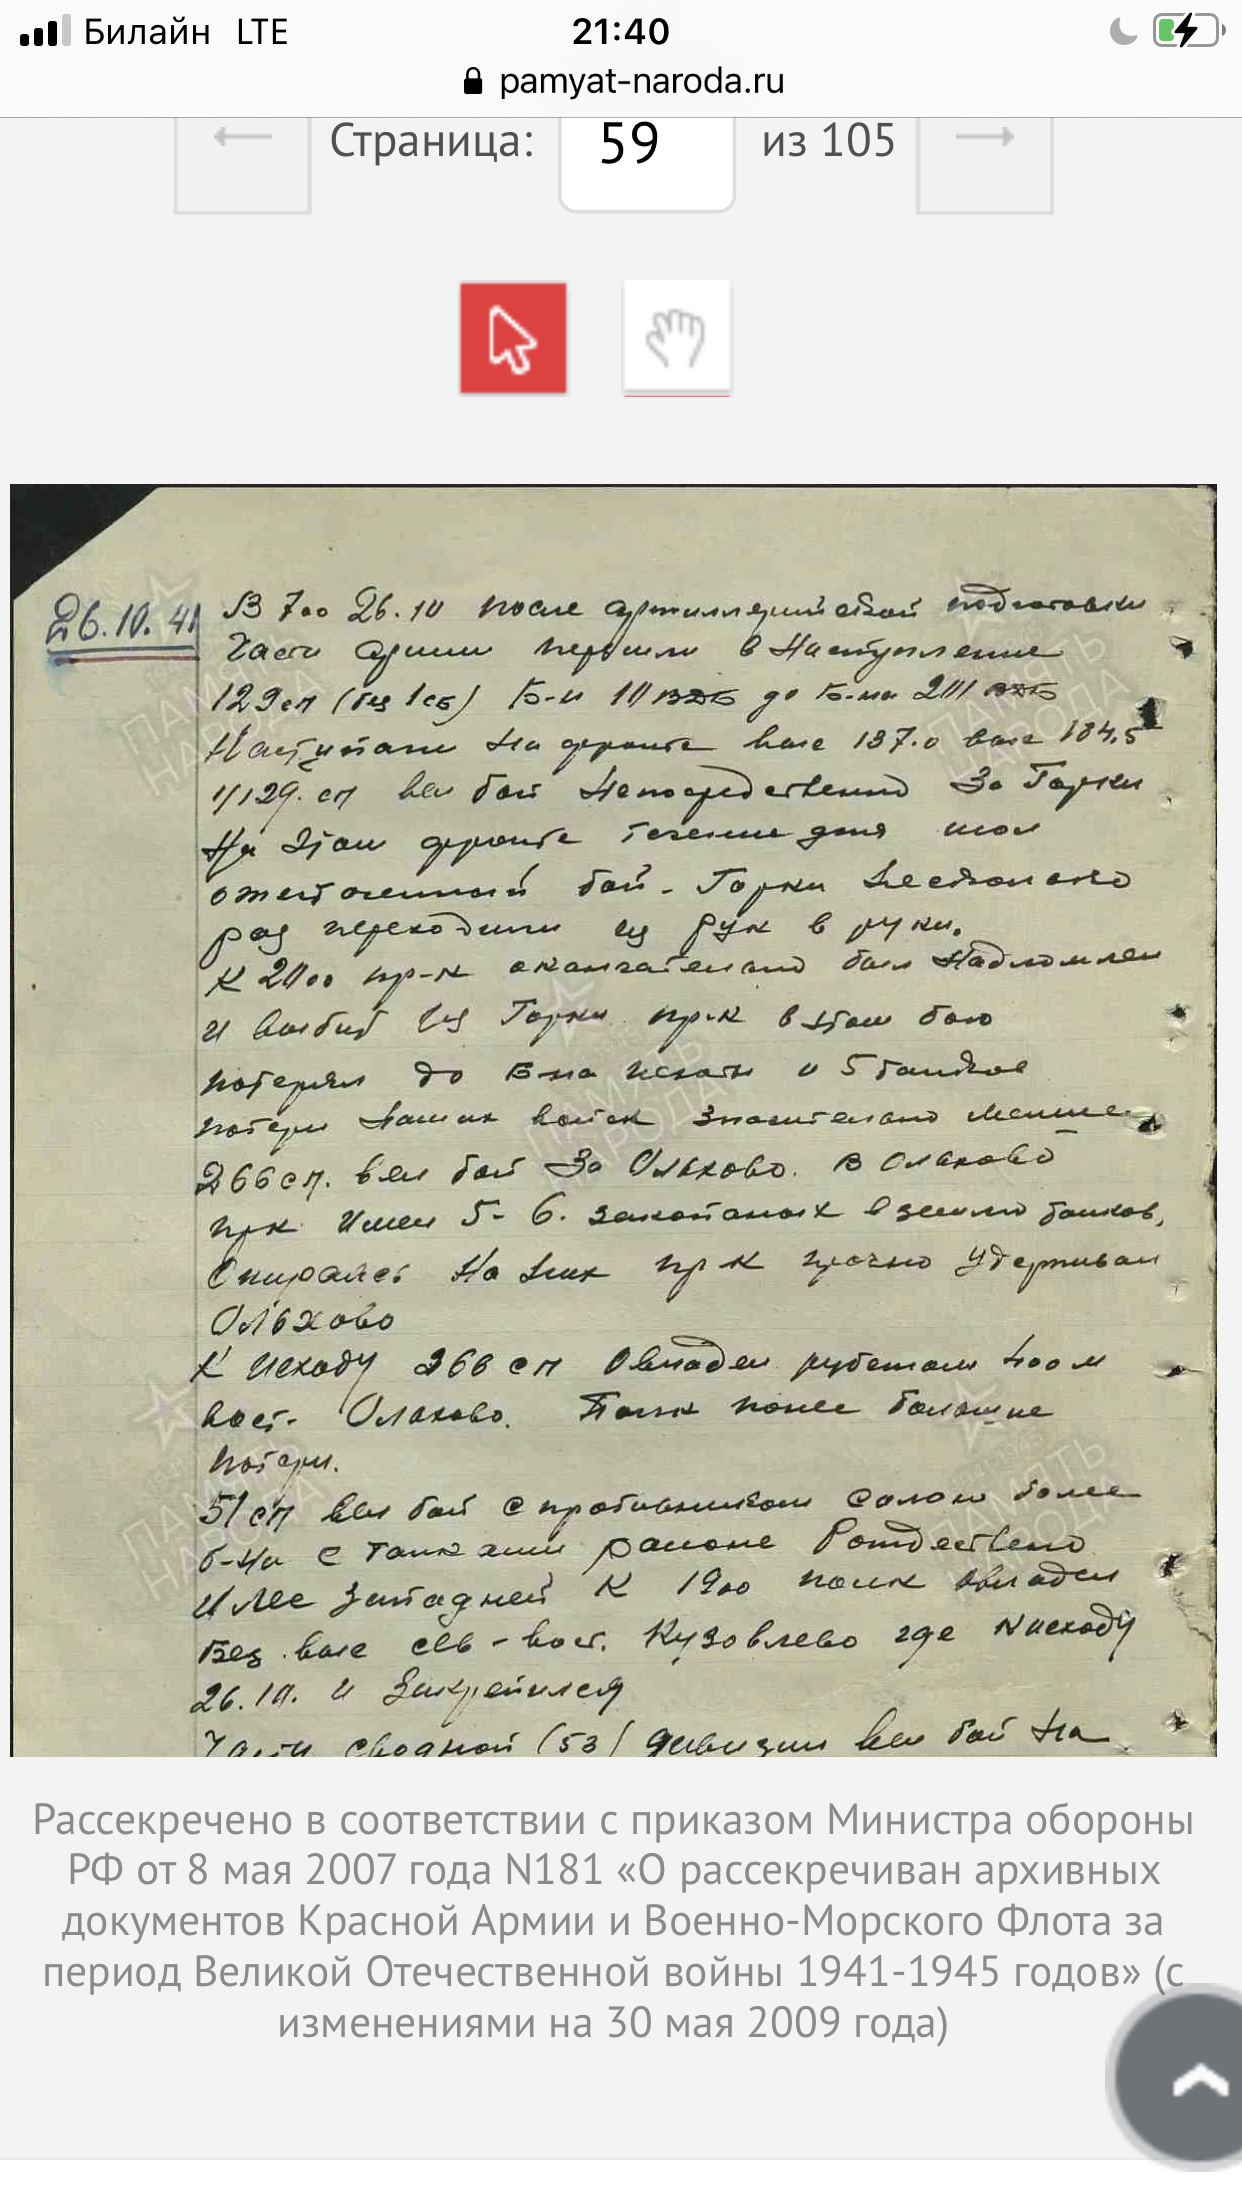 Билайн LTE 21:40
pamyat-naroda.ru
Страница: 59 из 105
26.10.41
В 7оо 26.10 после артиллерийской подготовки
Части армии перешли в наступление
129сп (без 1сб) Б-н 10ВДБ до Б-на 201 ВДБ
Наступали на фронте выс 137.0 выс 184.5
1/129.сп вел бой непосредственно За Горки
На этом фронте течение дня шол
ожесточенный бой - Горки несколько
раз переходили из рук в руки.
К 20оо пр-к окончательно был надломлен
и выбит из Горки пр-к в этом бою
потерял до Б-на пехоты и 5 танков
потери наших войск значительно меньше
266сп. вел бой За Ольхово. В Ольхово
пр-к имел 5-6. закопаных в землю танков,
Опираясь на них пр-к прочно удерживал
Ольхово
К исходу 266 сп Овладел рубежом 400 м
вост. Ольхово. Полк понес большие
потери.
51 сп вел бой с противником силою более
б-на с танками районе Рождествено
и лес западней К 19оо полк овладел
Без. выс сев-вост. Кузовлево где к исходу
26.10. и Закрепился
Части сводной (53) дивизии вел бой на
Рассекречено в соответствии с приказом Министра обороны
РФ от 8 мая 2007 года N181 «О рассекречиван архивных
документов Красной Армии и Военно-Морского Флота за
период Великой Отечественной войны 1941-1945 годов» (с
изменениями на 30 мая 2009 года)